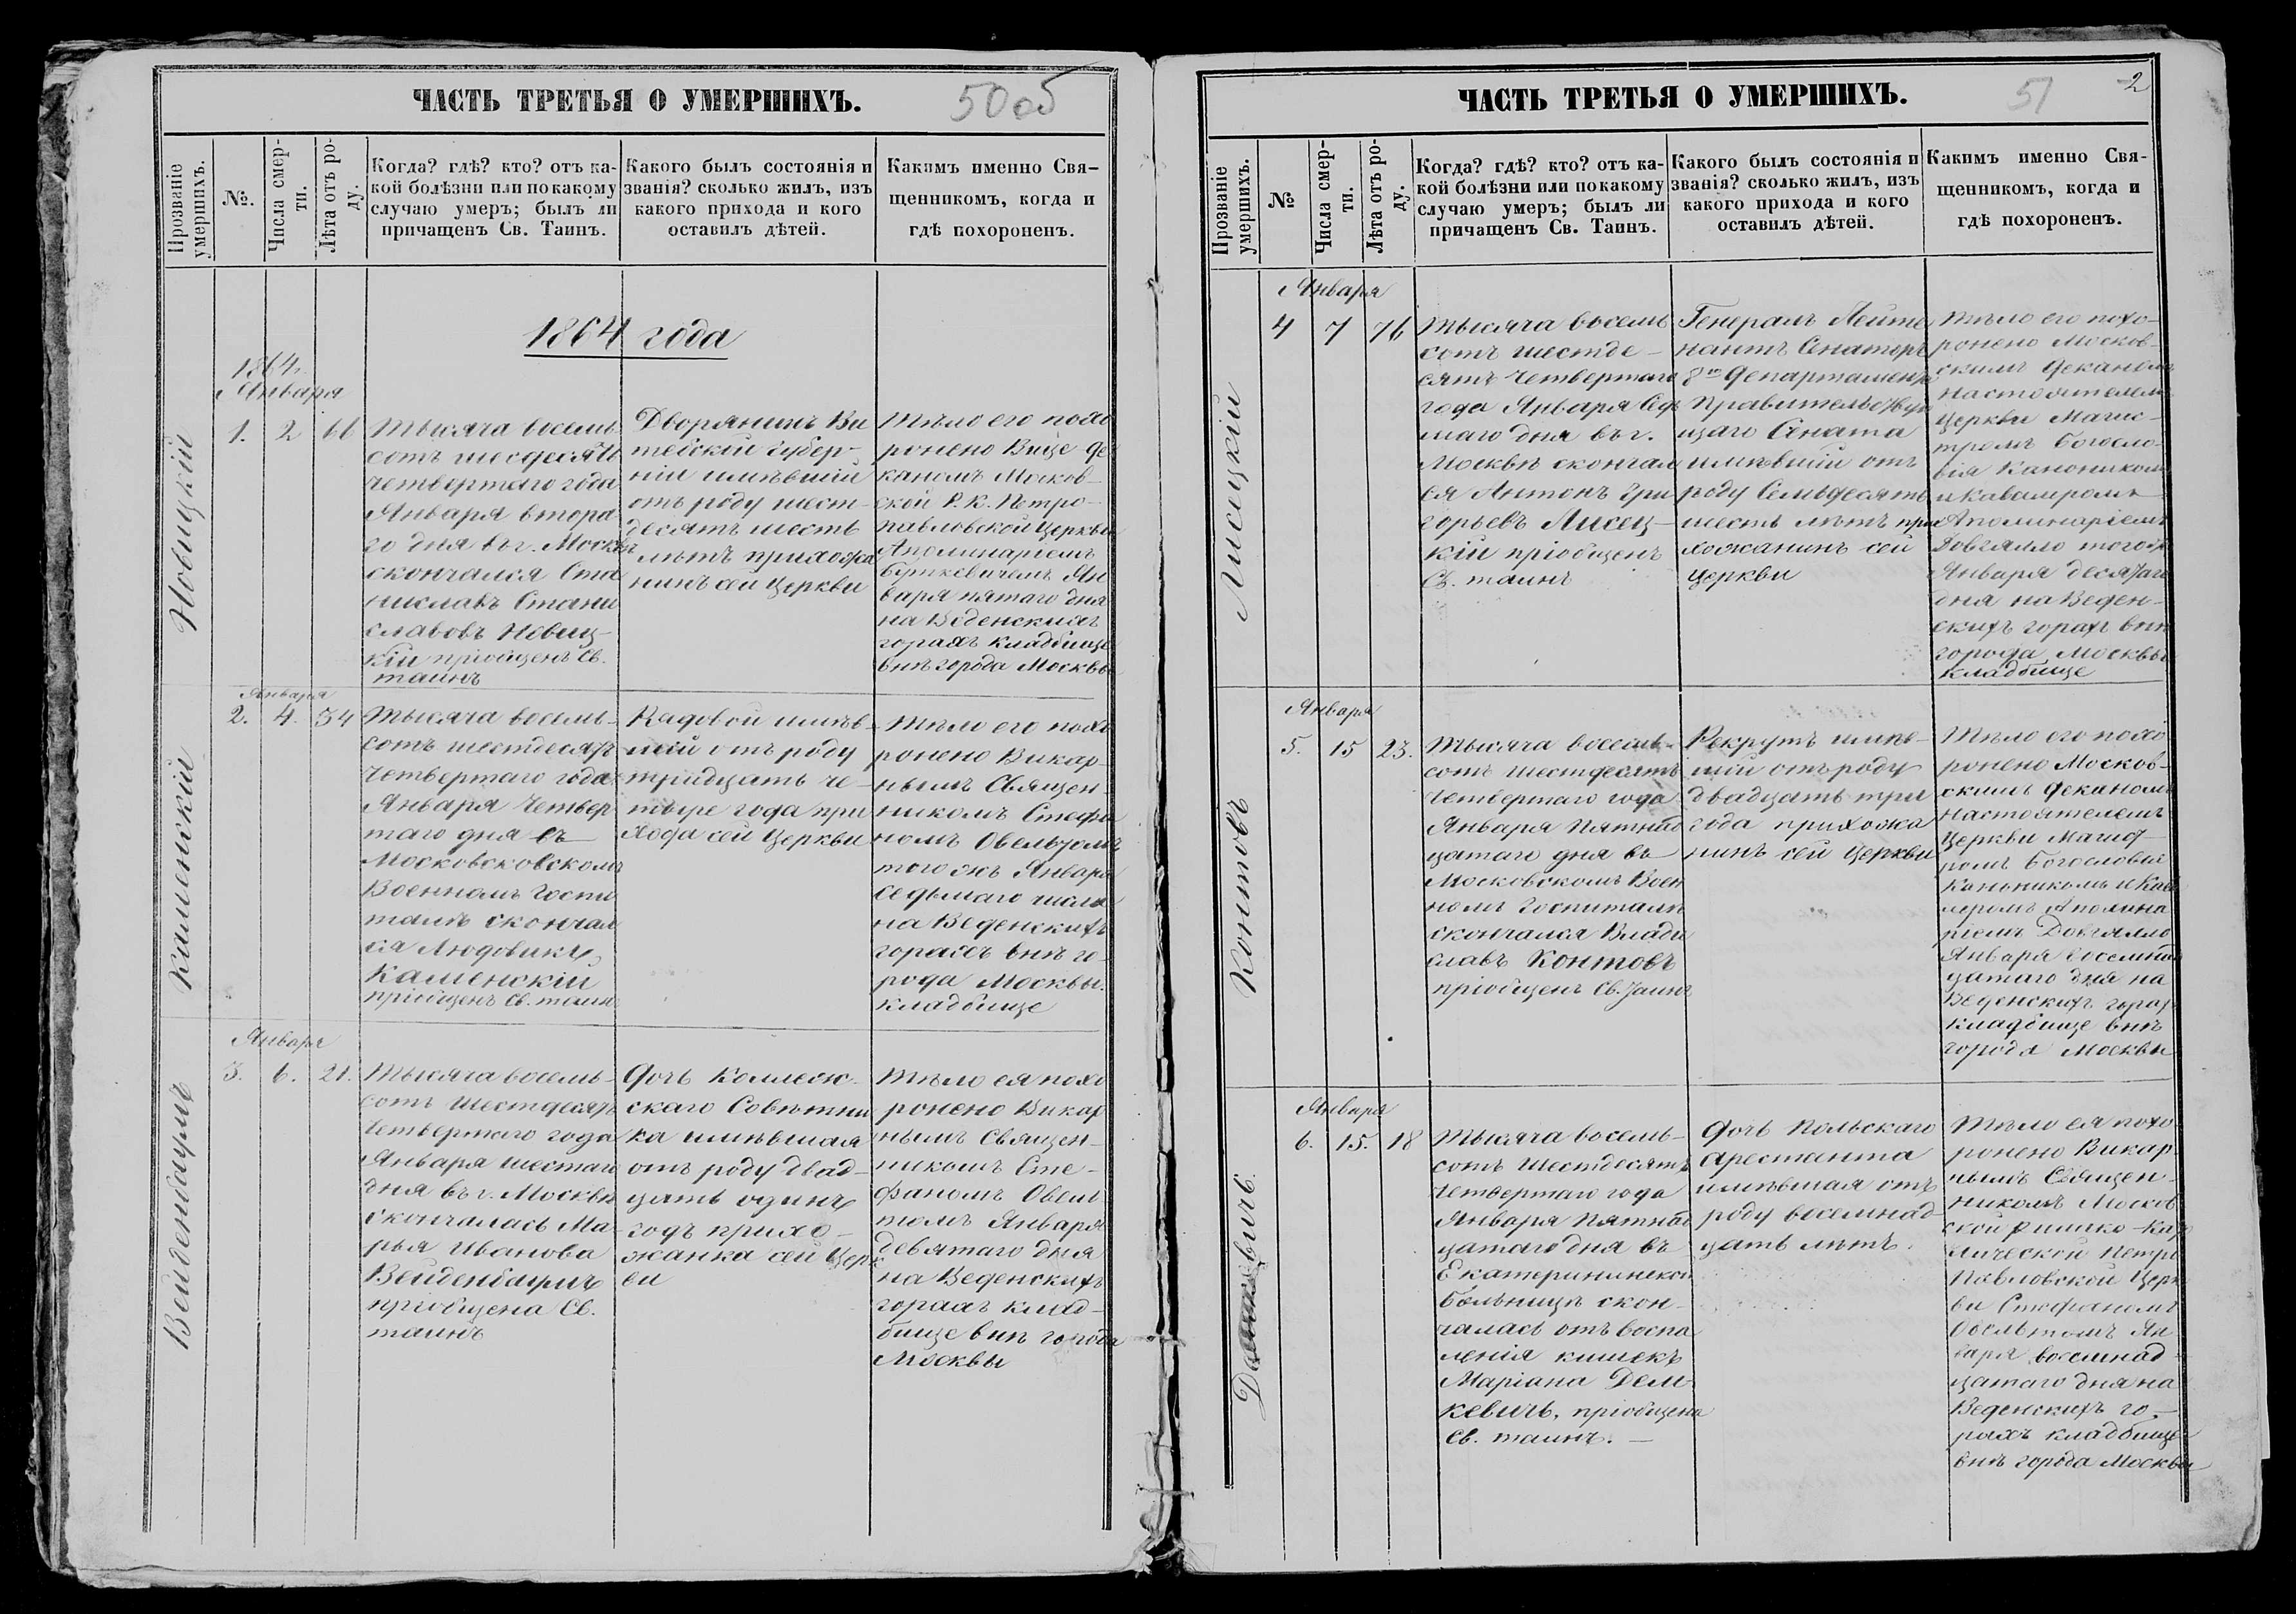 ЧАСТЬ ТРЕТЬЯ О УМЕРШИХЪ.
50 об
Прозваніе умершихъ.
№.
Числа смерти.
Лѣта отъ роду.
Когда? гдѣ? кто? отъ ка-
кой болѣзни или по какому
случаю умеръ; былъ ли
причащенъ Св. Таинъ.
Какого былъ состоянія и
званія? сколько жилъ, изъ
какого прихода и кого
оставилъ дѣтей.
Какимъ именно Свя-
щенникомъ, когда и
гдѣ похороненъ.
1864 года
1864.
Января
Новицкій
1. 2 66
Тысяча восемь
сотъ шесдесятъ
четвертаго года
Января втора
го дня въ г. Москвѣ
скончался Ста
ниславъ Стани
славовъ Новиц-
кій пріобщенъ Св.
таинъ
Дворянинъ Ви
тебскій губер-
ніи имѣвшій
отъ роду шесть-
десятъ шесть
лѣтъ прихожа
нинъ сей Церкви
Тѣло его похо
ронено Вице де
каномъ Москов-
ской Р. К. Петро-
павловской Церкви
Аполинаріемъ
Буткевичемъ Ян
варя пятаго дня
на Веденскихъ
горахъ кладбище
внѣ города Москвы
Января
Каменскій
2. 4. 34
Тысяча восемь-
сотъ шестдесятъ
Четвертаго года
Января Четвер
таго дня въ
Московсковскомъ
Военномъ Госпи
талѣ скончал
ся Людовикъ
Каменскій
пріобщенъ Св. таинъ
Рядовой имѣв-
шій отъ роду
тридцать че-
тыре года при
хода сей Церкви
Тѣло его похо
ронено Викар-
нымъ Священ-
никомъ Стефа
номъ Овельтомъ
того жъ Января
седьмаго числа
на Веденскихъ
горахъ внѣ го-
рода Москвы.
кладбище
Января
Вейденбаумъ
3. 6. 21.
Тысяча восемь-
сотъ Шестдесятъ
Четвертаго года
Января шестаго
дня въ г. Москвѣ
скончалась Ма-
рья Иванова
Вейденбаумъ
пріобщена Св.
таинъ
Дочь Коллеж-
скаго Совѣтни
ка имѣвшая
отъ роду двад-
цать одинъ
годъ прихо-
жанка сей Церк
ви
Тѣло ея похо
ронено Викар
нымъ Священ-
никомъ Сте-
фаномъ Овель-
томъ Января
девятаго дня
на Веденскихъ
горахъ клад-
бище внѣ города
Москвы
ЧАСТЬ ТРЕТЬЯ О УМЕРШИХЪ.
51
2
Прозваніе умершихъ.
№
Числа смерти.
Лѣта отъ роду.
Когда? гдѣ? кто? отъ ка-
кой болѣзни или по какому
случаю умеръ; былъ ли
причащенъ Св. Таинъ.
Какого былъ состоянія и
званія? сколько жилъ, изъ
какого прихода и кого
оставилъ дѣтей.
Какимъ именно Свя-
щенникомъ, когда и
гдѣ похороненъ.
Января
Лисецкій
4 7 76
Тысяча восемь
сотъ шестде-
сятъ Четвертаго
года Января Седь
маго дня въ г.
Москвѣ скончал
ся Антонъ Гри
горьевъ Лисец-
кій пріобщенъ
Св. таинъ
Генералъ Лейте
нантъ Сенаторъ
8го Департамента
Правительствую
щаго Сената
имѣвшій отъ
роду Семьдесятъ
шесть лѣтъ при
хожанинъ сей
Церкви
Тѣло его похо-
ронено Москов-
скимъ деканомъ
настоятелемъ
Церкви Магис-
тромъ богосло-
вія Каноникомъ
и Кавалеромъ
Аполинаріемъ
Довгялло тогожъ
Января десятаго
дня на Веден-
скихъ горахъ внѣ
города Москвы
кладбище
Января
Контовъ
5. 15 23.
Тысяча восемь-
сотъ шестдесятъ
Четвертаго года
Января Пятнад
цатаго дня въ
Московскомъ Воен
номъ Госпиталѣ
скончался Влади
славъ Контовъ
пріобщенъ Св. Таинъ
Рекрутъ имѣв-
шій отъ роду
двадцать три
года прихожа
нинъ сей Церкви
Тѣло его похо
ронено Москов-
скимъ деканомъ
настоятелемъ
Церкви Магист-
ромъ Богословія
Каноникомъ и Кава
леромъ Аполина
ріемъ Довгялло
Января восемнад
цатаго дня на
Веденскихъ горах
кладбище внѣ
города Москвы
Января
6. 15. 18
Тысяча восемь-
сотъ Шестдесятъ
Четвертаго года
Января Пятнад
цатаго дня въ
Екатерининской
больницѣ скон-
чалась отъ воспа
ленія кишекъ
Маріана Дем-
кевичъ, пріобщена
Св. таинъ.
Дочь Польскаго
арестанта
имѣвшая отъ
роду восемнад-
цать лѣтъ.
Тѣло ея похо
ронено Викар
нымъ Священ-
никомъ Москов
ской Римско-Кат
лической Петро
Павловской Церк
ви Стефаномъ
Овельтомъ Ян
варя восемнад-
цатаго дня на
Веденскихъ го-
рахъ кладбище
внѣ города Москвы